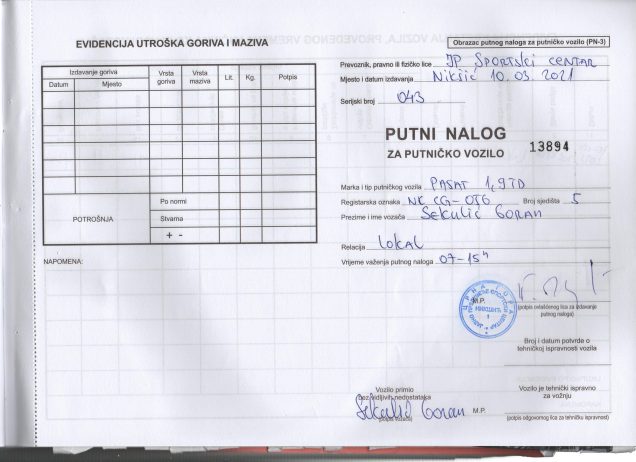 EVIDENCIJA UTROŠKA GORIVA I MAZIVA
Izdavanje goriva
Datum
Mjesto
Vrsta goriva
Vrsta maziva
Lit.
Kg.
Potpis
POTROŠNJA
Po normi
Stvarna
+ -
NAPOMENA:
Obrazac putnog naloga za putničko vozilo (PN-3)
Prevoznik, pravno ili fizičko lice JP Sportski centar
Mjesto i datum izdavanja Nikšić 10.03.2021
Serijski broj 043
PUTNI NALOG
ZA PUTNIČKO VOZILO
13894
Marka i tip putničkog vozila PASAT 1,9TD
Registarska oznaka NK CG-056 Broj sjedišta 5
Prezime i ime vozača Sekulić Goran
Relacija Lokal
Vrijeme važenja putnog naloga 07-15h
ЦРНА ГОРА
НИКШИЋ
1
M.P.
(potpis ovlašćenog lica za izdavanje
putnog naloga)
Broj i datum potvrde o
tehničkoj ispravnosti vozila
Vozilo primio
bez vidljivih nedostataka
Sekulić Goran
(potpis vozača)
M.P.
Vozilo je tehnički ispravno
za vožnju
(potpis odgovornog lica za tehničku ispravnost)